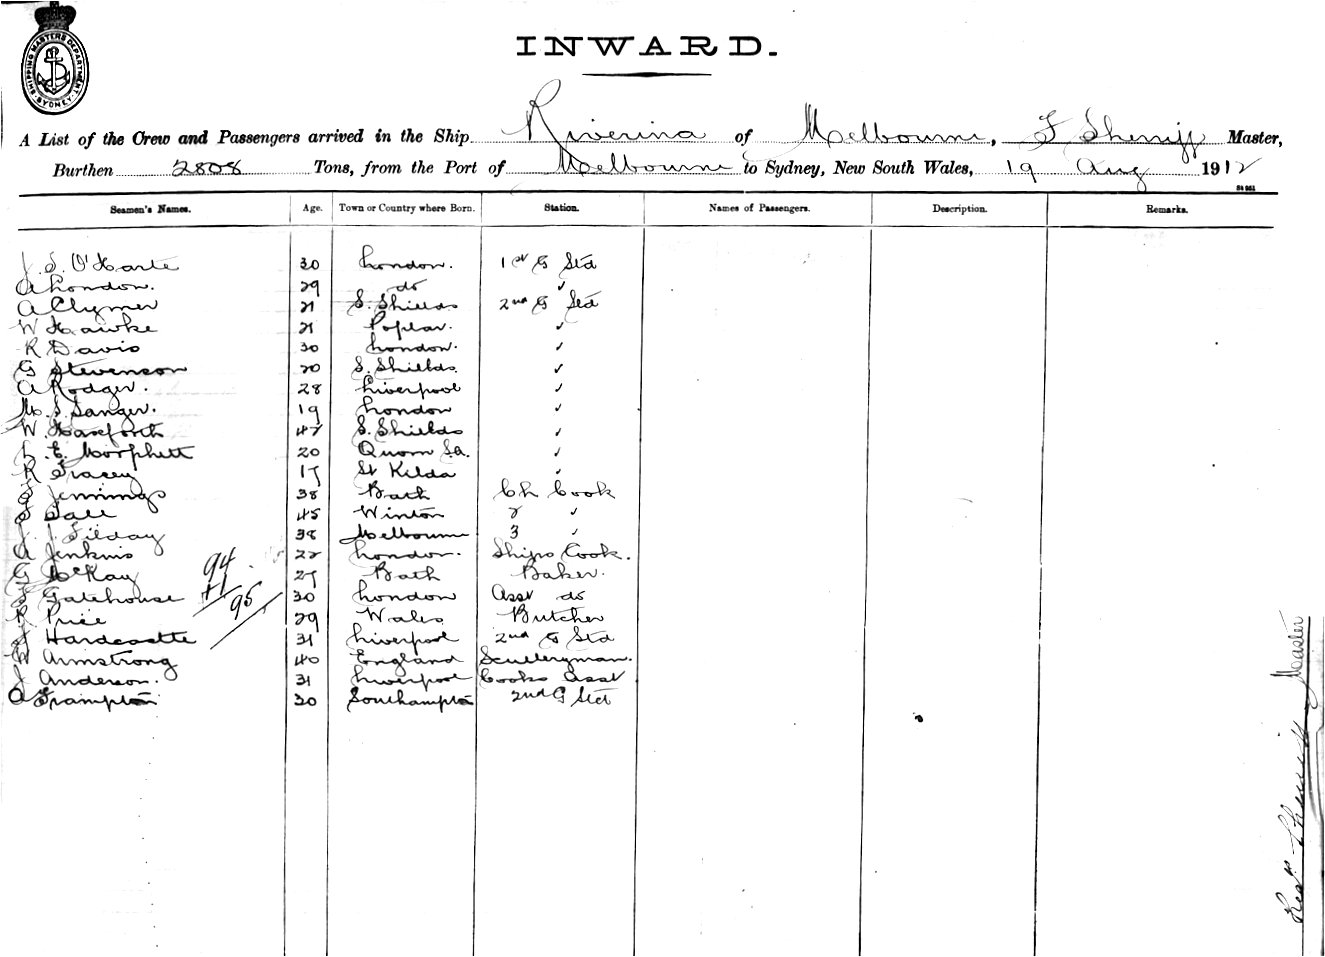 SHIPPING MASTERS DEPARTMENT. SYDNEY.
INWARD.
A List of the Crew and Passengers arrived in the Ship Riverina of Melbourne, F Sherriff Master,
Burthen 2808 Tons, from the Port of Melbourne to Sydney, New South Wales, 19 Aug 1912
Seamen's Names. Age. Town or Country where Born. Station. Names of Passengers. Description. Remarks.
J. S. O'Harte 30 London. 1st G Std
A London. 29 do ✓
A Clymer 21 S. Shields 2nd G Std
W Hawke 21 Poplar. ✓
R Davis 30 London. ✓
G Stevenson 20 S. Shields. ✓
A Rodger. 28 Liverpool ✓
M. S. Sanger. 19 London ✓
W. Haxforth 47 S. Shields ✓
L. E. Morphett 20 Quorn S.A. ✓
R Tracey 17 St Kilda ✓
Jennings 38 Bath Ch Cook
Tall 45 Winton 2 ✓
J. J. Filday 38 Melbourne 3 ✓
A Jenkins 22 London. Ships Cook.
G McKay 27 Bath Baker.
Gatehouse 30 London Asst do
R Price 29 Wales Butcher
J Hardcastle 31 Liverpool 2nd G Std
Armstrong 40 England Sculleryman.
J Anderson. 31 Liverpool Cooks Asst
A Frampton 30 Southampton 2nd G Std
94
+1
95
Sherriff Master